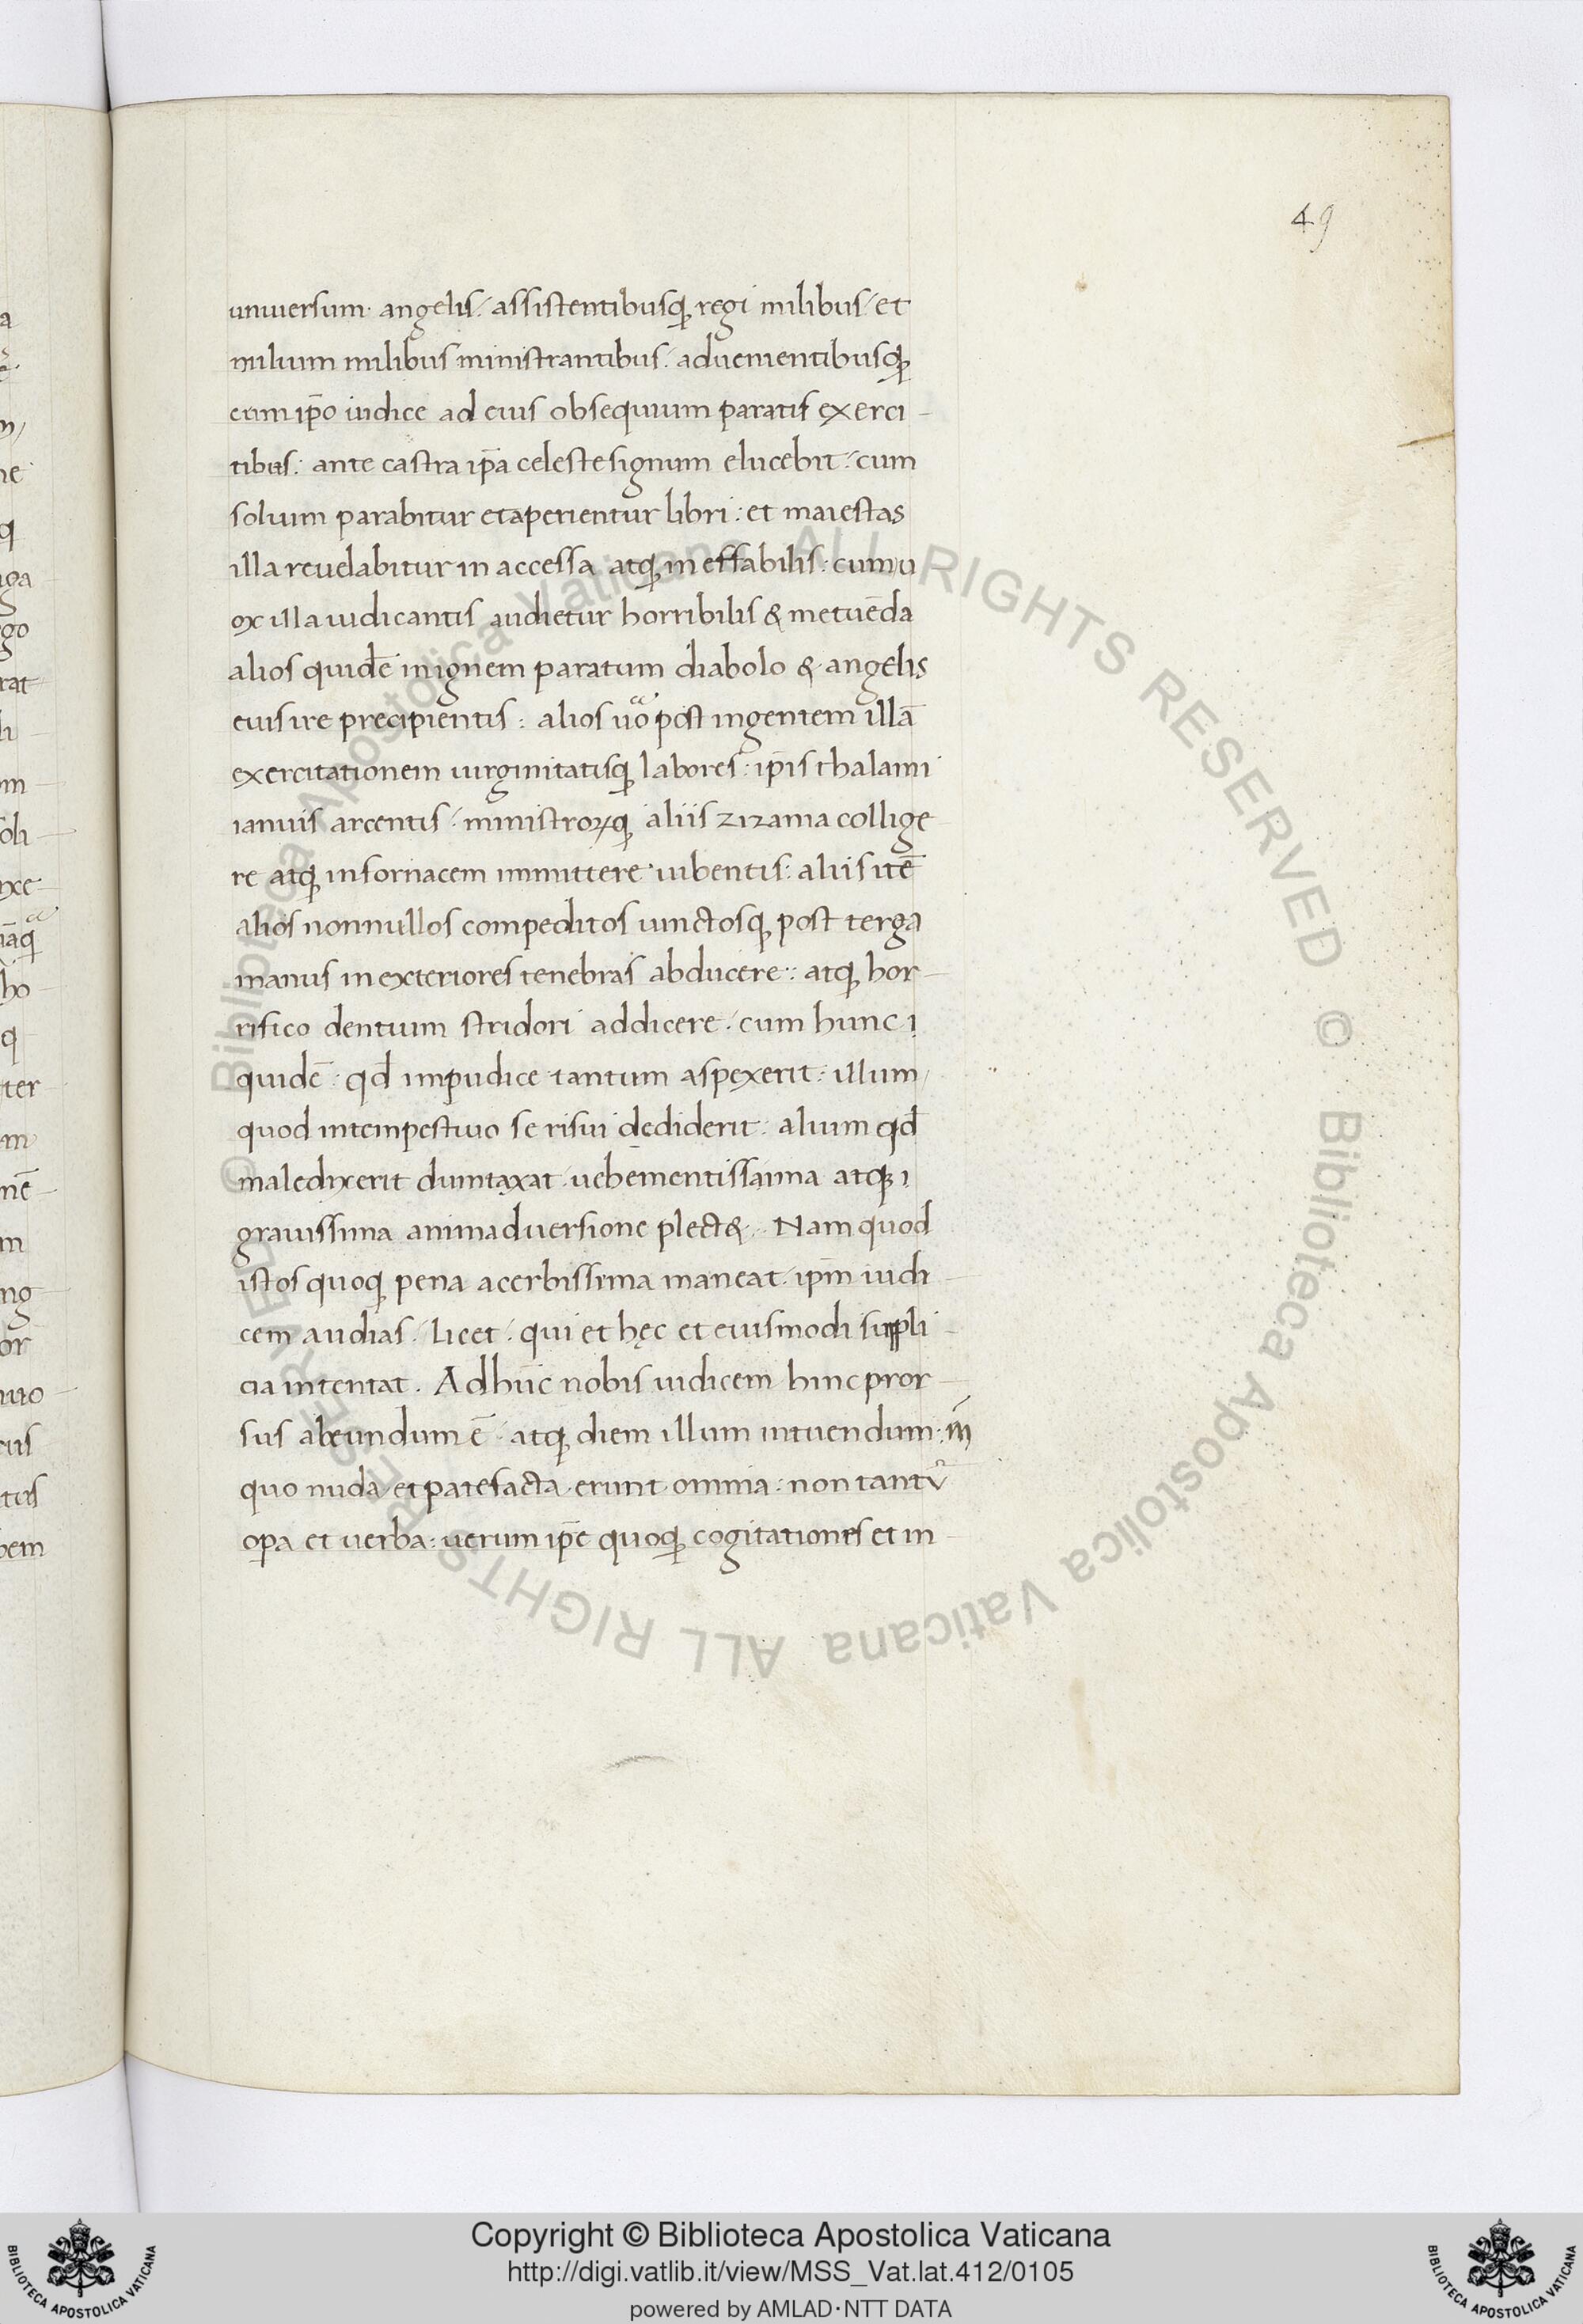 49
uniuersum· angelis·/ assistentibusq̧ regi milibus·/ et
milium milibus ministrantibus·/ aduenientibusq̧
cum ip̄o iudice ad eius obsequium paratis exerci-
tibus: ante castra ip̄a celeste signum elucebit·/ cum
solium parabitur et aperientur libri: et maiestas
illa reuelabitur in accessa atq̧ in effabilis: cum u
ox illa iudicantis audietur horribilis & metuēda
alios quidē in ignem paratum diabolo & angelis
eius ire precipientis: alios uͦo post ingentem illā
exercitationem uirginitatisq̧ labores: ip̄is thalami
ianuis arcentis·/ ministroꝝq̧ aliis zizania collige
re atq̧ in fornacem immittere iubentis: aliis itē
alios nonnullos compeditos uinctosq̧ post terga
manus in exteriores tenebras abducere: atq̧ hor-
rifico dentium stridori addicere·/ cum hunc i
quidē: qđ impudice tantum aspexerit: illum/
quod intempestiuo se risui dediderit: alium qđ
maledixerit dumtaxat uehementissima atq̧ i
grauissima animaduersione plect&·. Nam quod
istos quoq̧ pena acerbissima maneat·/ ip̄m iudi-
cem audias·/ licet·/ qui et hęc et eiusmodi suppli-
cia intentat. Ad hūc nobis iudicem hinc pror-
sus abeundum ē· atq̧ diem illum intuendum: in
quo nuda et patefacta erunt omnia: non tantū
oꝑa et uerba: uerum ip̄e quoq̧ cogitationes et in-
Copyright © Biblioteca Apostolica Vaticana
http://digi.vatlib.it/view/MSS_Vat.lat.412/0105
powered by AMLAD·NTT DATA
BIBLIOTECA APOSTOLICA VATICANA
BIBLIOTECA APOSTOLICA VATICANA
© Biblioteca Apostolica Vaticana ALL RIGHTS RESERVED
© Biblioteca Apostolica Vaticana ALL RIGHTS RESERVED